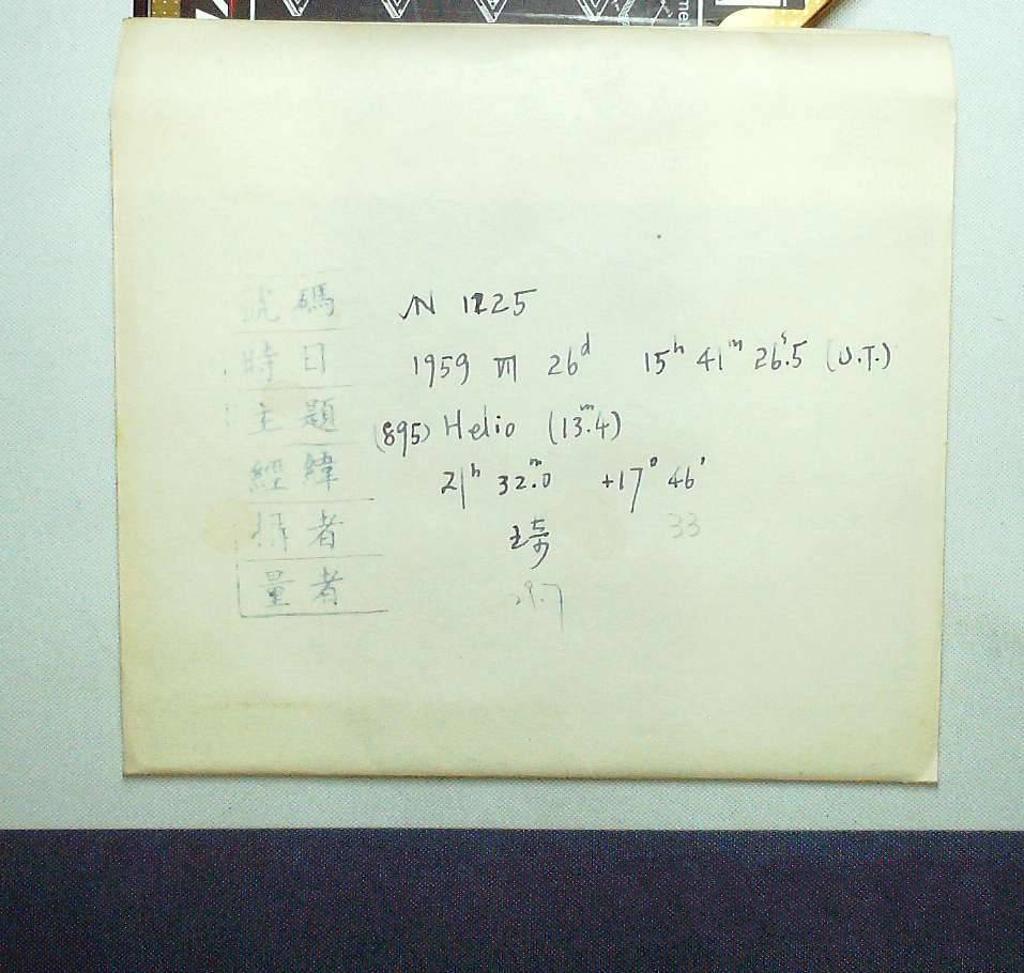 號碼 N 1225
時日 1959 VII 26ᵈ 15ʰ 41ᵐ 26ˢ.5 (U.T.)
主題 (895) Helio (13ᵐ.4)
經緯 21ʰ 32ᵐ.0 +17° 46'
攝者 王琦 33
量者